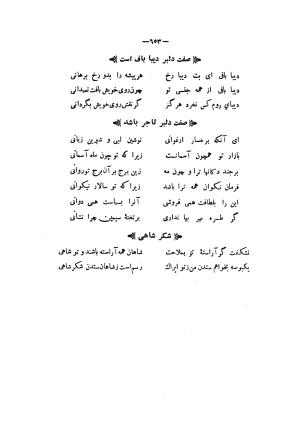 —۶۵۳—
صفت دلبر دیبا باف است
دیبا بافی ای بت دیبا رخ هر پیشه را بدو رخ برهانی
دیبا بافی از همه جنسی تو چون روی خویش بافت نمیدانی
دیبای روم کس نخرد هرگز گر نقش روی خویش بگردانی
صفت دلبر تاجر باشد
ای آنکه برخسار ارغوانی نوشین لبی و شیرین زبانی
بازار تو همچون آسمانست زیرا که تو چون ماه آسمانی
برجند دکانها ترا و چون مه زین برج بر آن برج تو روانی
فرمان نکوان همه ترا باشد زیرا که تو سالار نیکوانی
این را بلطافت همی فروشی آنرا بسیاست همی دوانی
گر طسره نیر بیا نداری برتختهٔ سیمین چرا نشانی
شکر شاهی
نشگفت گر آراستهٔ تو بملاحت شاهان همه آراسته باشند و تو شاهی
یکبوسه بخواهم ستدن من ز تو ایراک رسم است ز شاهان ستدن شکر شاهی